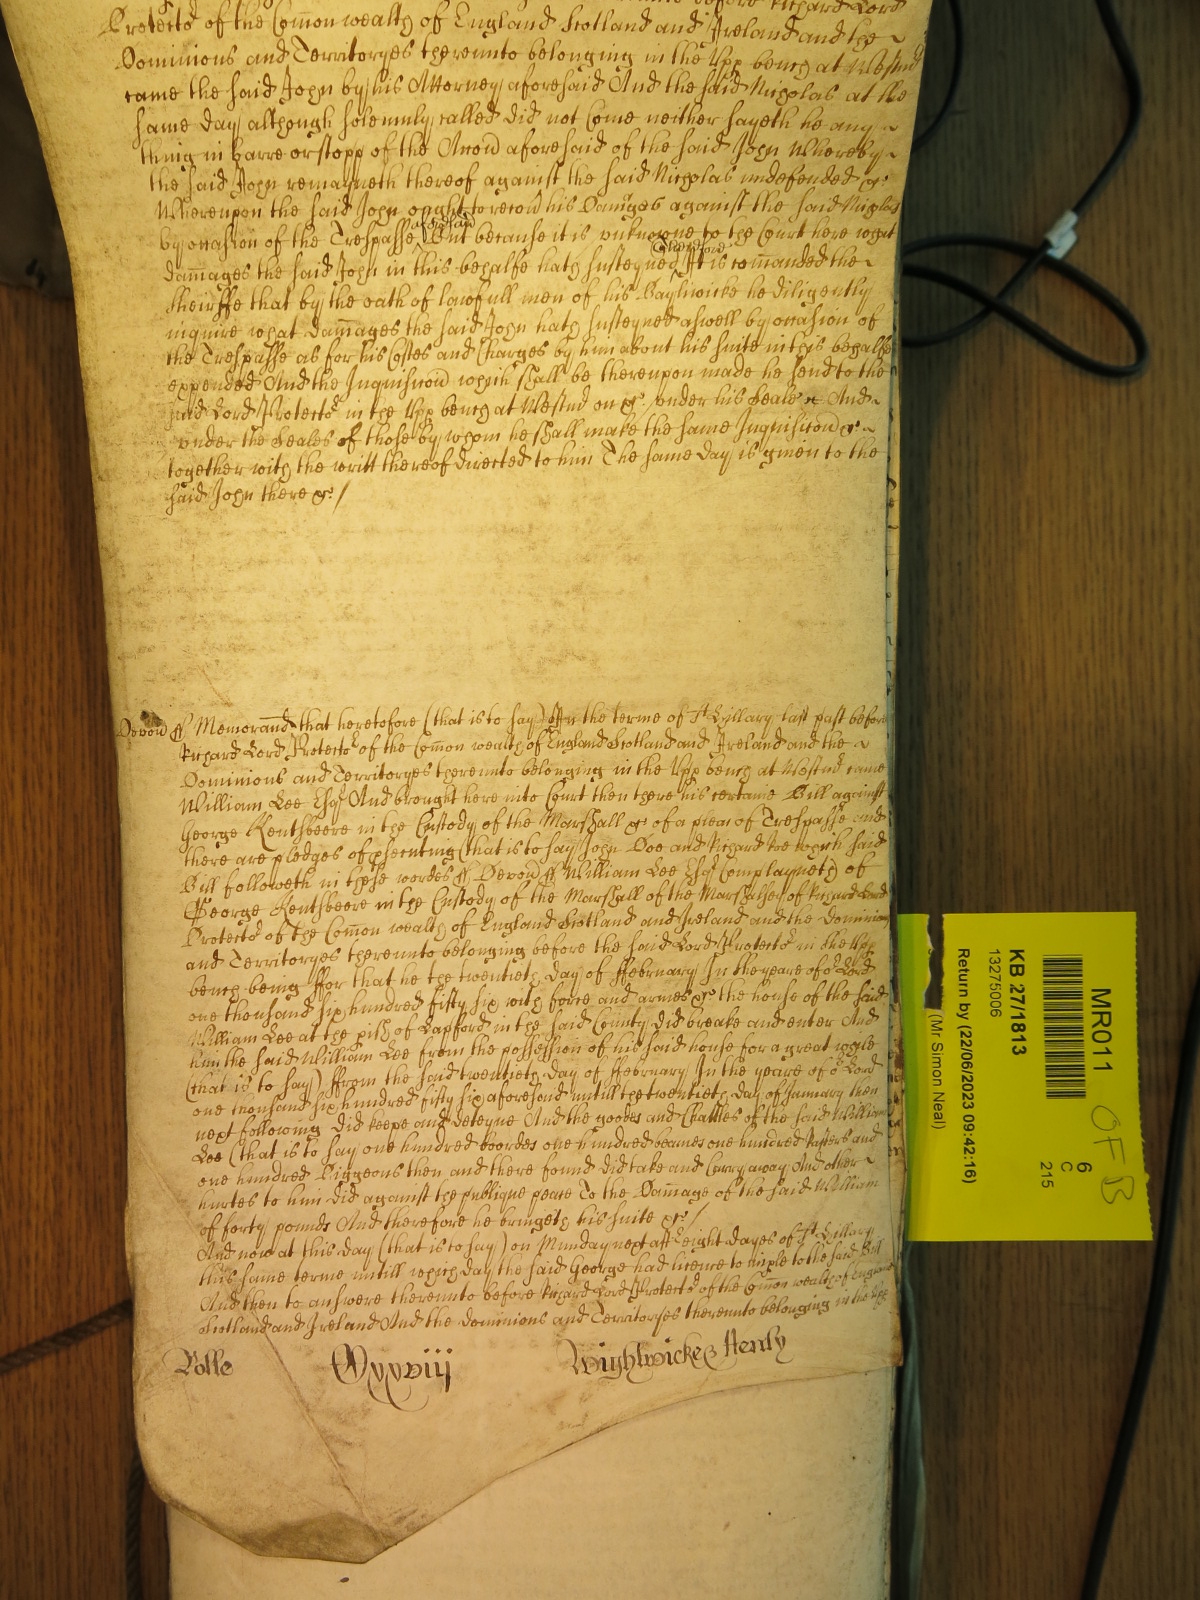 Protector of the Comon wealth of England Scotland and Ireland and the
Dominions and Territoryes thereunto belonging in the Upp bench at Westmr
came the said John by his Attorney aforesaid And the said Nicholas at the
same day although solemnly called did not Come neither sayeth he any
thing in barre or stopp of the Accon aforesaid of the said John Whereby
the said John remayneth thereof against the said Nicholas undefended &c
Whereupon the said John ought to recou his Damages against the said Nicholas
by occasion of the Trespasse aforesaid But because it is unknowne to the Court here what
damages the said John in this behalfe hath susteyned Therefore It is comanded the
Sheriffe that by the oath of lawfull men of his Bayliwicke he diligently
inquire what damages the said John hath susteyned aswell by occasion of
the Trespasse as for his Costes and Charges by him about his suite in this behalfe
expended And the Inquisicon which shall be thereupon made he send to the
said Lord Protector in the Upp bench at Westmr on &c under his Seale &c And
under the Seales of those by whom he shall make the same Inquisicon &c
together with the writt thereof directed to him The same day is given to the
said John there &c /
Devon ss Memorand that heretofore (that is to say) In the terme of St Hillary last past before
Richard Lord Protector of the Comon wealth of England Scotland and Ireland and the
Dominions and Territoryes thereunto belonging in the Upp bench at Westmr came
William Lee Esqr And brought here into Court then there his certaine Bill against
George Kentsbeere in the Custody of the Marshall &c of a plea of Trespasse and
there are pledges of psecuting (that is to say) John Doe and Richard Roe which said
Bill followeth in these wordes ss Devon ss William Lee Esqr Complayneth of
George Kentsbeere in the Custody of the Marshall of the Marshalsey of Richard Lord
Protector of the Comon wealth of England Scotland and Ireland and the Dominions
and Territoryes thereunto belonging before the said Lord Protector in the Upp
bench being ffor that he the twentieth day of ffebruary In the yeare of or Lord
one thousand six hundred fifty six with force and armes &c the house of the said
William Lee at the pish of Lapford in the said County did breake and enter And
him the said William Lee from the possession of his said house for a great while
(that is to say) ffrom the said twentieth day of ffebruary In the yeare of or Lord
one thousand six hundred fifty six aforesaid untill the twentieth day of January then
next following did keepe and deteyne And the goodes and Chattles of the said William
Lee (that is to say one hundred boordes one hundred beames one hundred Rafters and
one hundred Piggeons then and there found did take and Carry away And other
hurtes to him did against the publique peace To the Damage of the said William
of forty pounds And therefore he bringeth his suite &c /
And now at this day (that is to say) on Munday next after eight dayes of St Hillary
this same terme untill which day the said George had licence to imple to the said Bill
And then to answere thereunto before Richard Lord Protector of the Comon wealth of England
Scotland and Ireland And the dominions and Territoryes thereunto belonging in the Upp
Rolle
Wightwicke & Henly
MR011
OF B
6
C
215
KB 27/1813
13275006
Return by (22/06/2023 09:42:16)
(Mr Simon Neal)